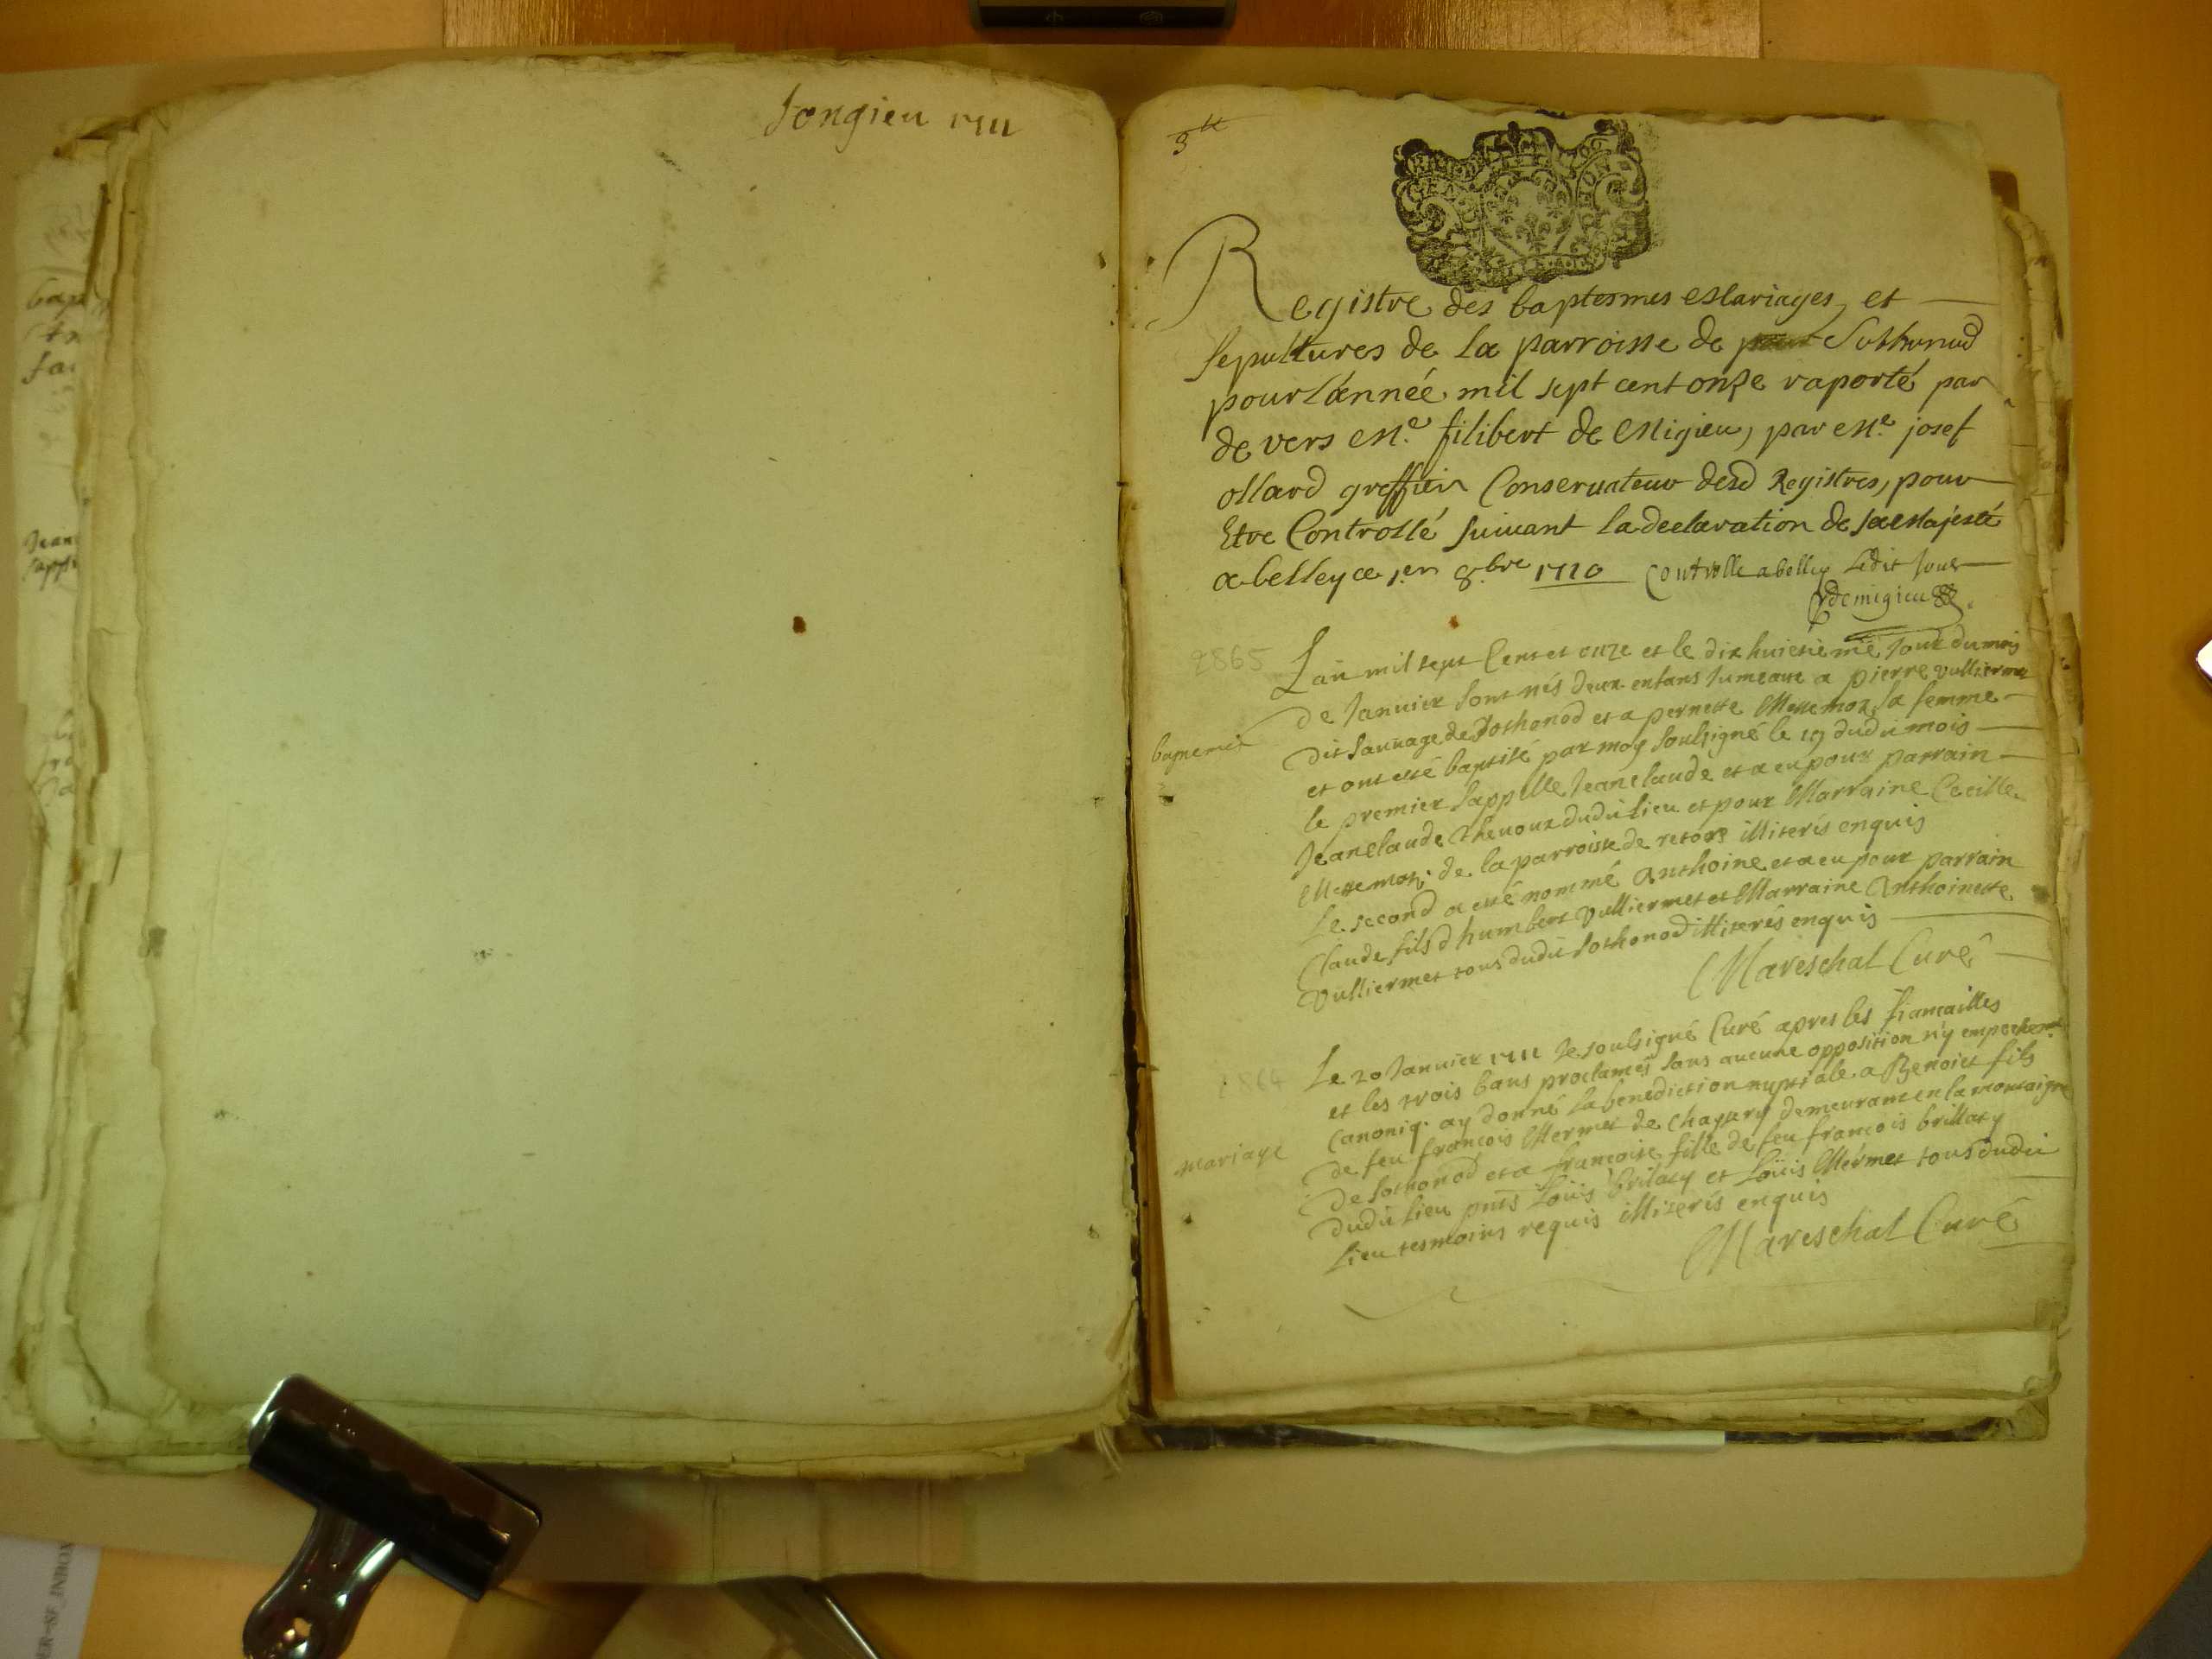 Songieu 1711
3tt
Registre des baptesmes Mariages et
sepultures de la parroisse de Sothonod
pour l'année mil sept cent onze raporté par
de vers Me. filibert de Migieu, par Me. josef
ollard greffier Conservateur desd Registres, pour
Etre Controllé suivant la declaration de sa Majesté
a belley ce 1er 8.bre 1710 Controlle a belley ledit Jour
demigieu
2865
L'an mil sept Cent et onze et le dix huictiéme Jour du mois
de Janvier sont nés deux enfans Jumeaux a pierre vulliermet
baptemes
dit sauvage de Sothonod et a pernette Mettemoz sa femme
et ont esté baptisé par moy soubsigné le 19 dudit mois
le premier s'appelle Jeanclaude et a eu pour parrain
Jeanclaude Thevoux dudit lieu et pour Marraine Cecille
Mettemoz de la parroisse de retord illiterés enquis
Le second a esté nommé Anthoine et a eu pour parrain
Claude fils d'humbert Vulliermet et Marraine Anthoinette
Vulliermet tous dudit Sothonod illiterés enquis
Mareschal Curé
2864
Le 20 Janvier 1711 Je soubsigné Curé apres les fiancailles
et les trois bans proclamés sans aucune opposition n'y empechemt
Canoniq. ay donné la benediction nuptiale a Benoict fils
mariage
de feu francois Mermet de demeurant en la montaigne
de Sothonod et a francoise fille de feu francois brillaty
dudit lieu pnts Loüis brilaty et Loüis Mermet tous dudit
lieu tesmoins requis illiterés enquis
Mareschal Curé